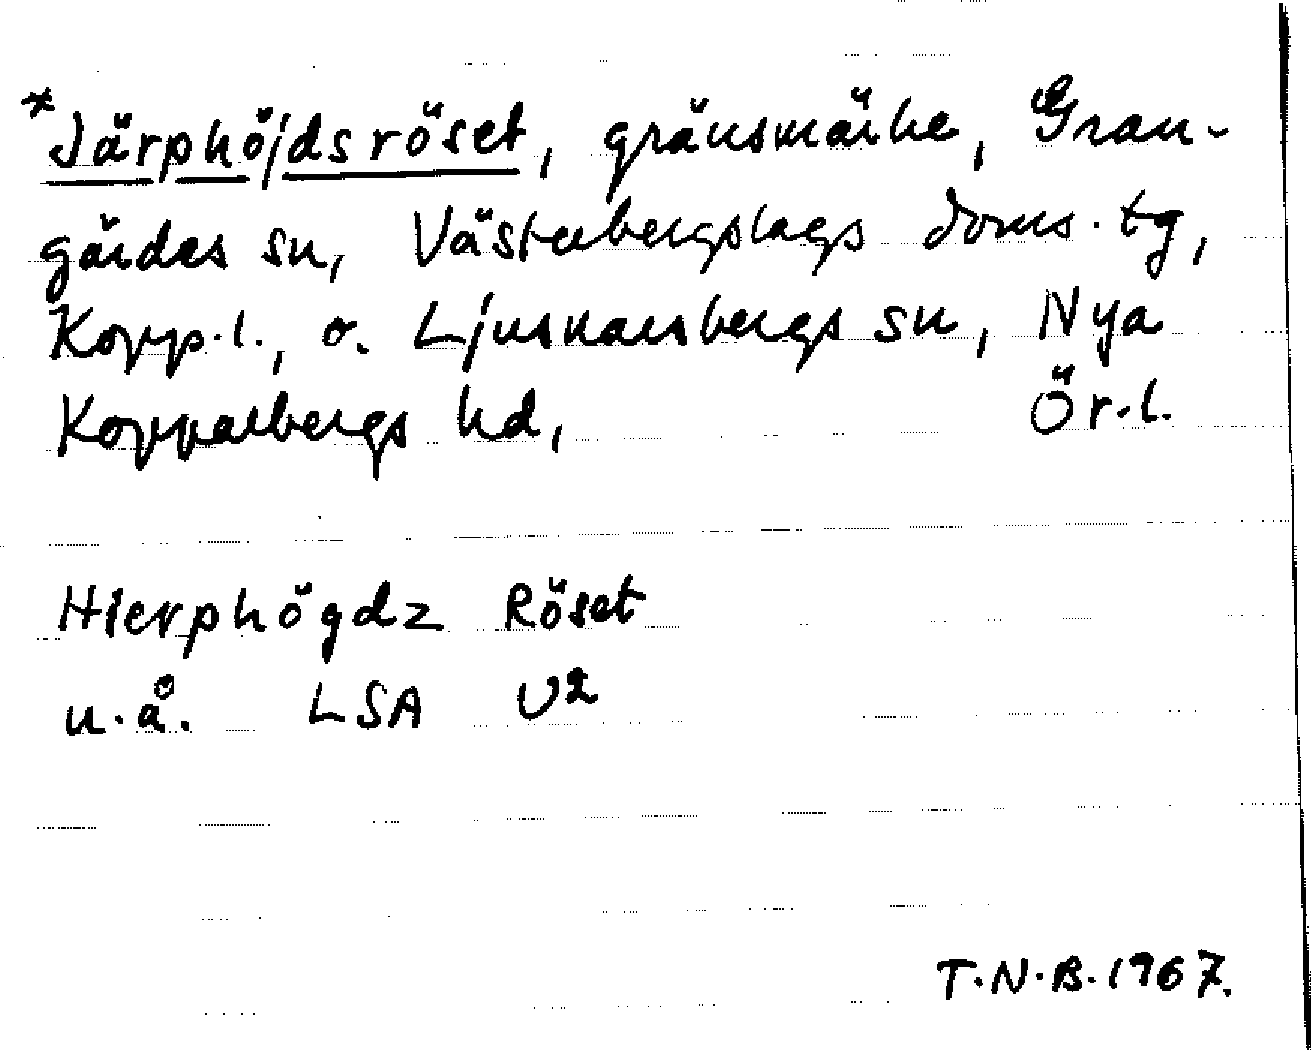 *Järphöjdsröset, gränsmärke, Gran-
gärdes sn, Västerbergslags doms. tg,
Kopp.l., o. Ljusnarsbergs sn, Nya
Kopparbergs hd, Ör.l.
Hierphögdz Röset
u.å. LSA U2
T.N.B. 1967.